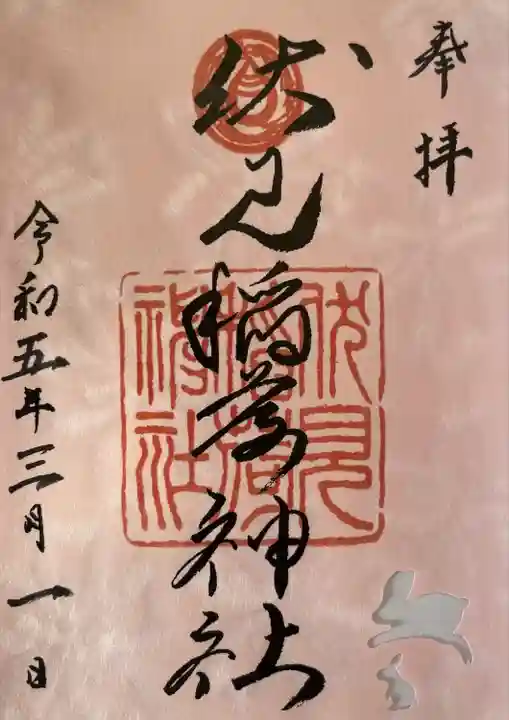 奉拝
伏見稲荷神社
伏見
稲荷
神社
令和五年三月一日